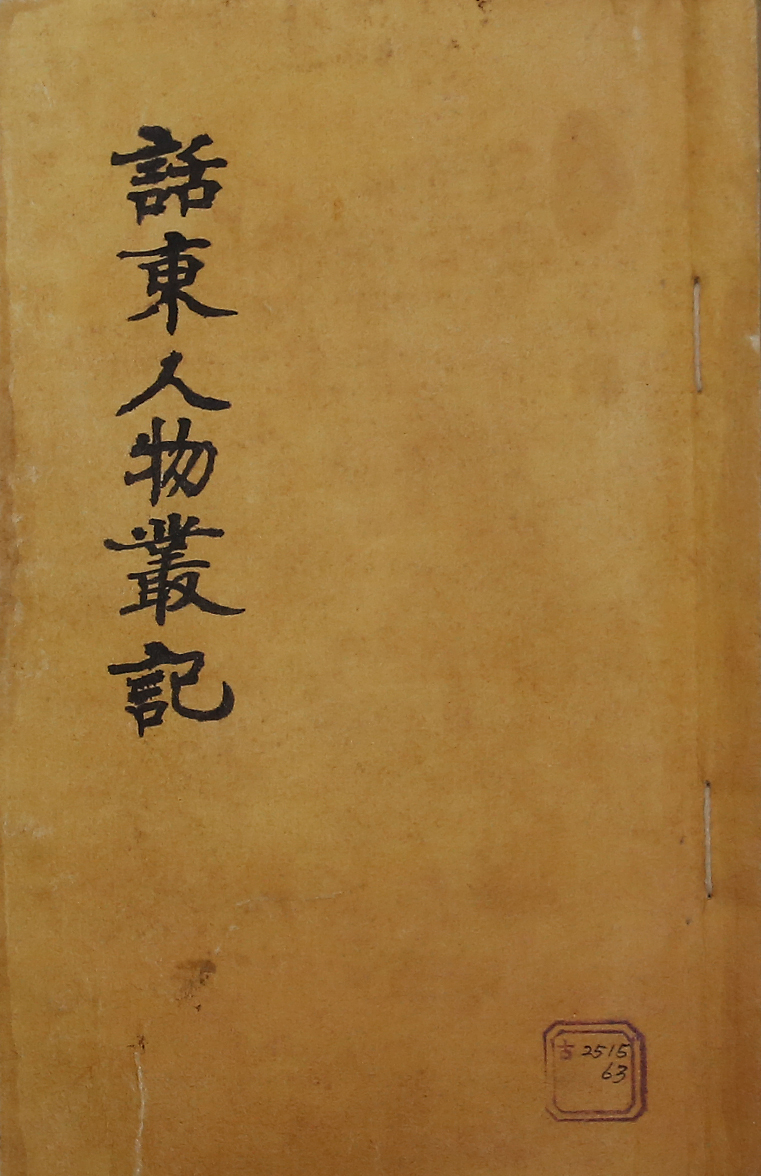 話東人物叢記
古2515
63